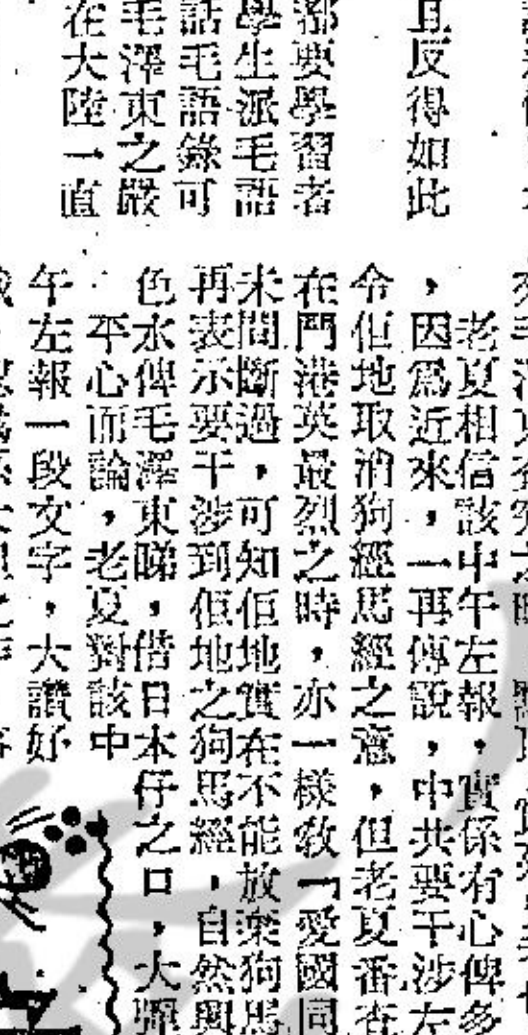 且反得如此
都要學習者
學生派毛語
話毛語錄可
毛澤東之嚴
在大陸一直
老夏相信該中午左報，實係有心俾多
，因爲近來，一再傳說，中共要干涉左
令佢地取消狗經馬經之意，但老夏番查
在鬥港英最烈之時，亦一樣敎「愛國同
未間斷過，可知佢地實在不能放棄狗馬
再表示要干涉到佢地之狗馬經，自然與
色水俾毛澤東睇，借日本仔之口，大彈
平心而論，老夏對該中
午左報一段文字，大讚好